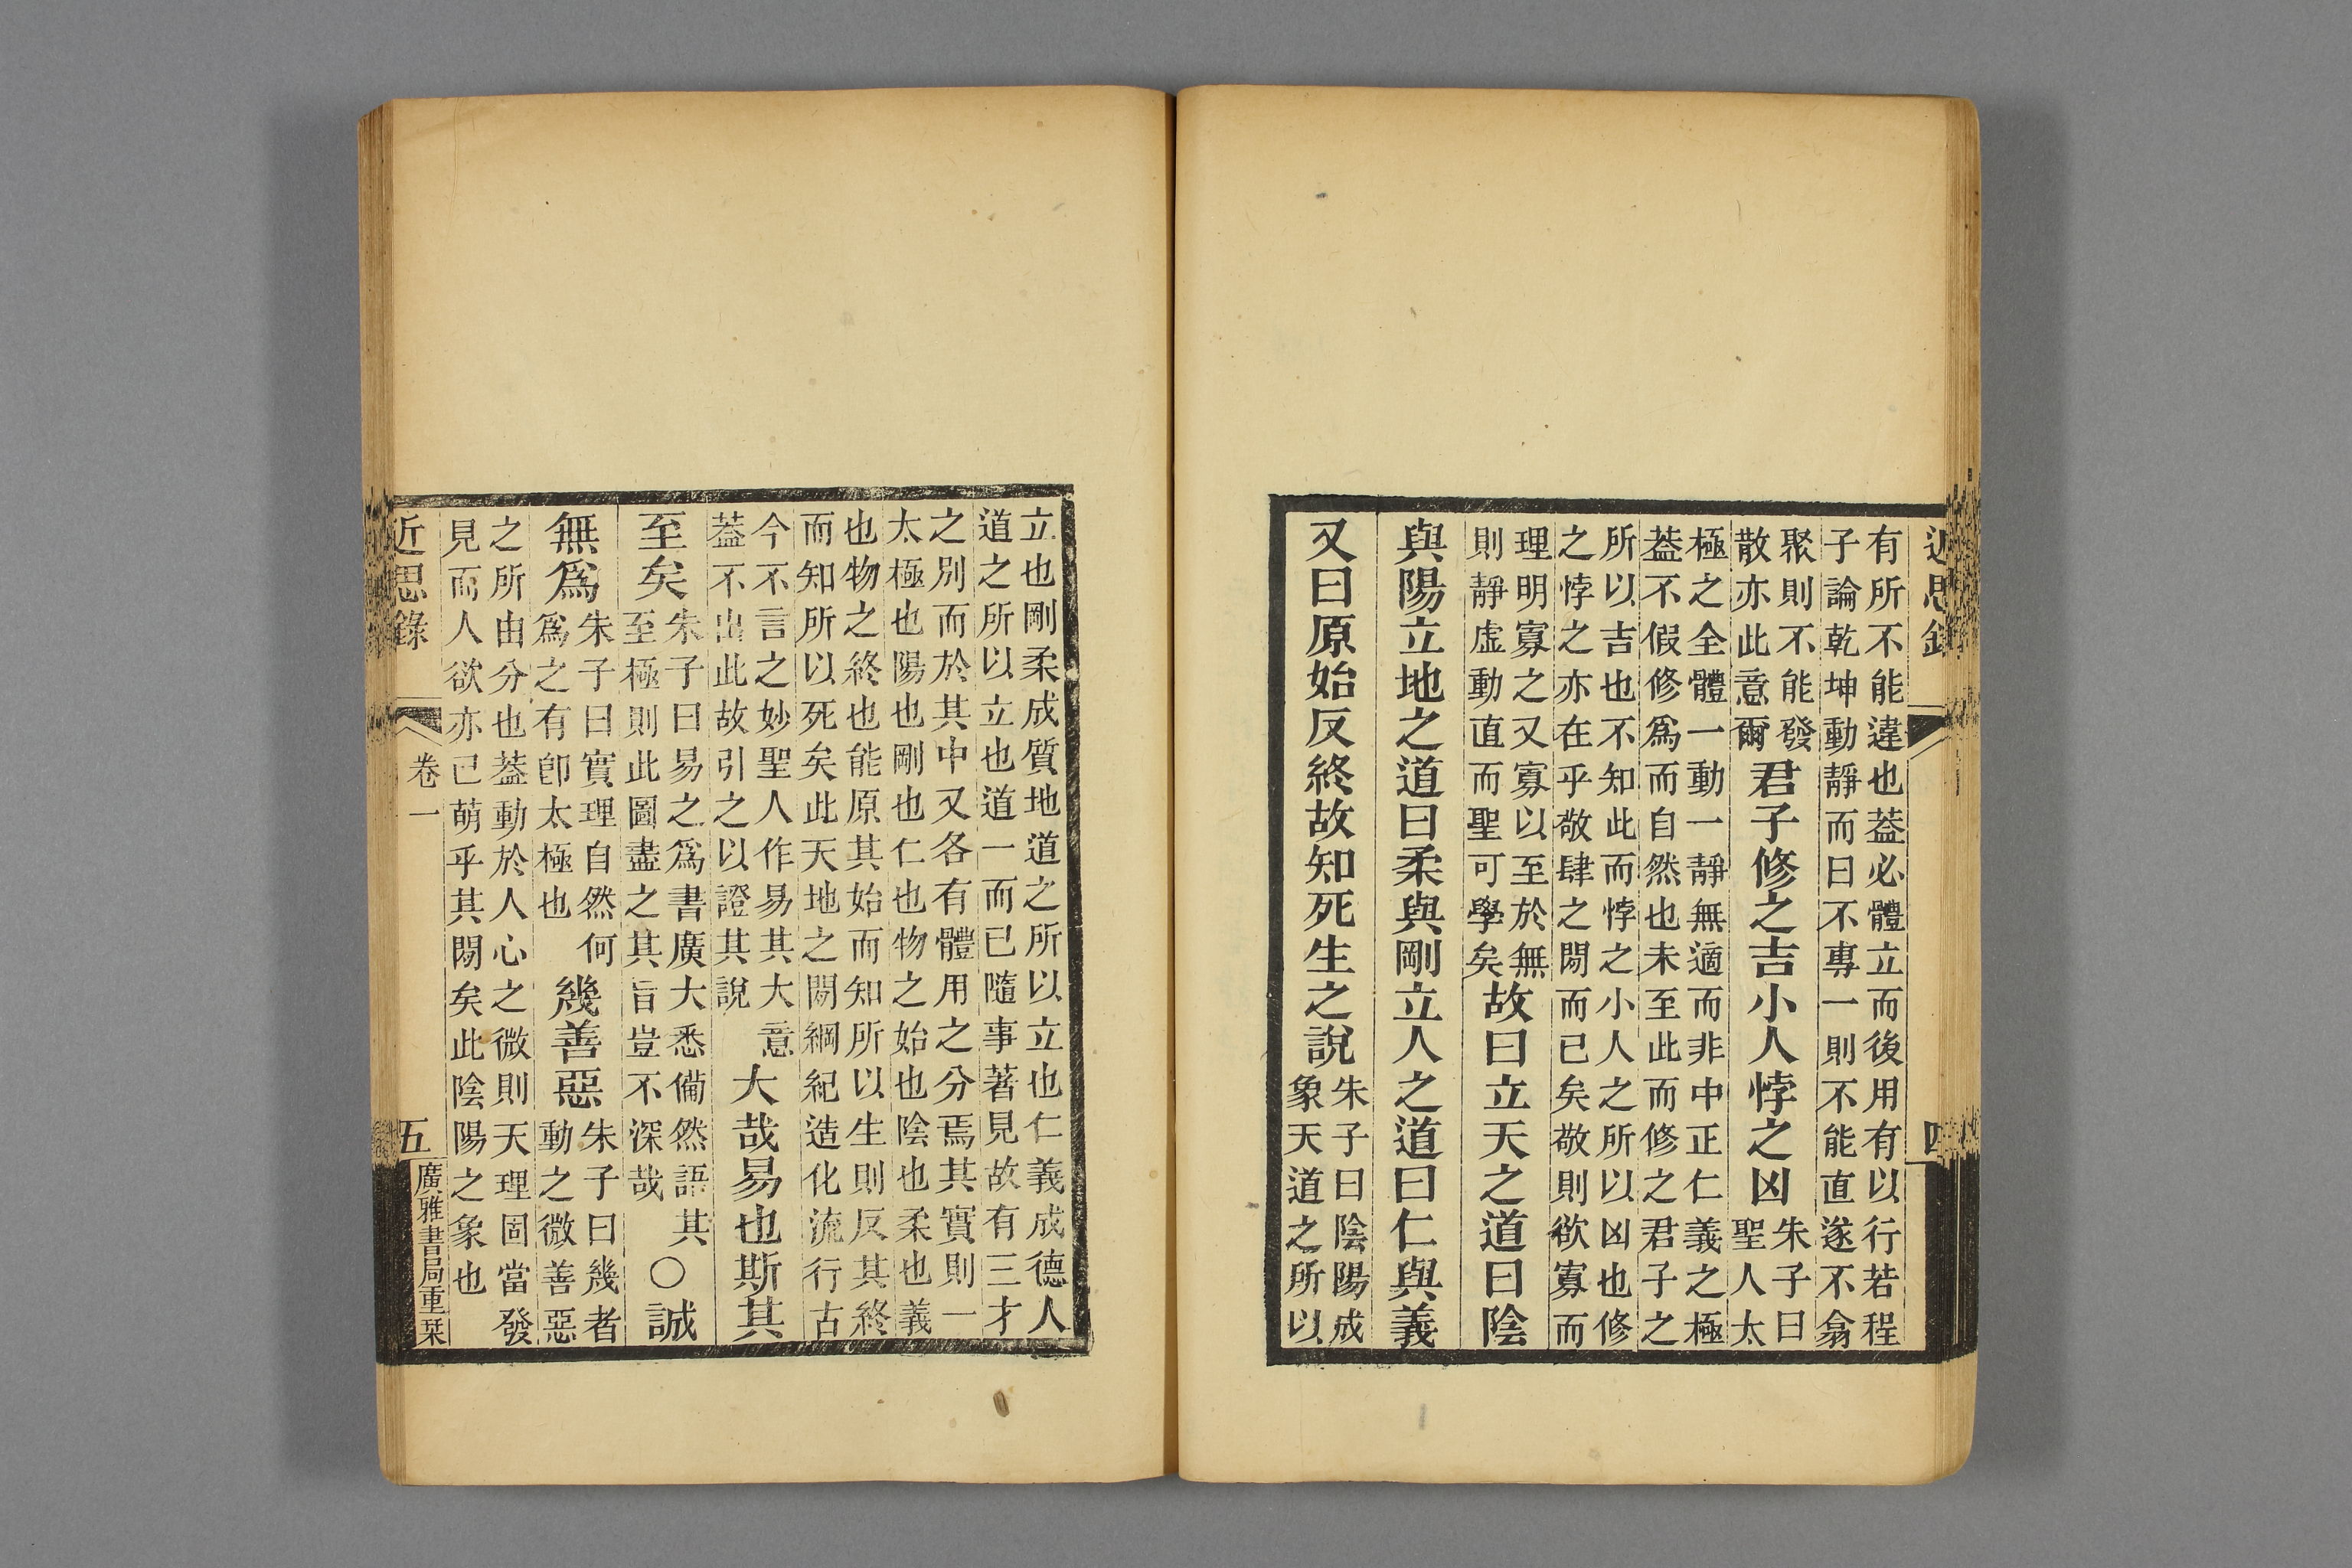 近思錄
四
有所不能違也葢必體立而後用有以行若程
子論乾坤動靜而曰不專一則不能直遂不翕
聚則不能發
散亦此意爾
君子修之吉小人悖之凶
朱子曰
聖人太
極之全體一動一靜無適而非中正仁義之極
葢不假修爲而自然也未至此而修之君子之
所以吉也不知此而悖之小人之所以凶也修
之悖之亦在乎敬肆之閒而已矣敬則欲寡而
理明寡之又寡以至於無
則靜虛動直而聖可學矣
故曰立天之道曰陰
與陽立地之道曰柔與剛立人之道曰仁與義
又曰原始反終故知死生之說
朱子曰陰陽成
象天道之所以
立也剛柔成質地道之所以立也仁義成德人
道之所以立也道一而已隨事著見故有三才
之別而於其中又各有體用之分焉其實則一
太極也陽也剛也仁也物之始也陰也柔也義
也物之終也能原其始而知所以生則反其終
而知所以死矣此天地之閒綱紀造化流行古
今不言之妙聖人作易其大意
葢不出此故引之以證其說
大哉易也斯其
至矣
朱子曰易之爲書廣大悉備然語其
至極則此圖盡之其旨豈不深哉
○誠
無爲
朱子曰實理自然何
爲之有卽太極也
幾善惡
朱子曰幾者
動之微善惡
之所由分也葢動於人心之微則天理固當發
見而人欲亦已萌乎其閒矣此陰陽之象也
近思錄
卷一
五
廣雅書局重栞